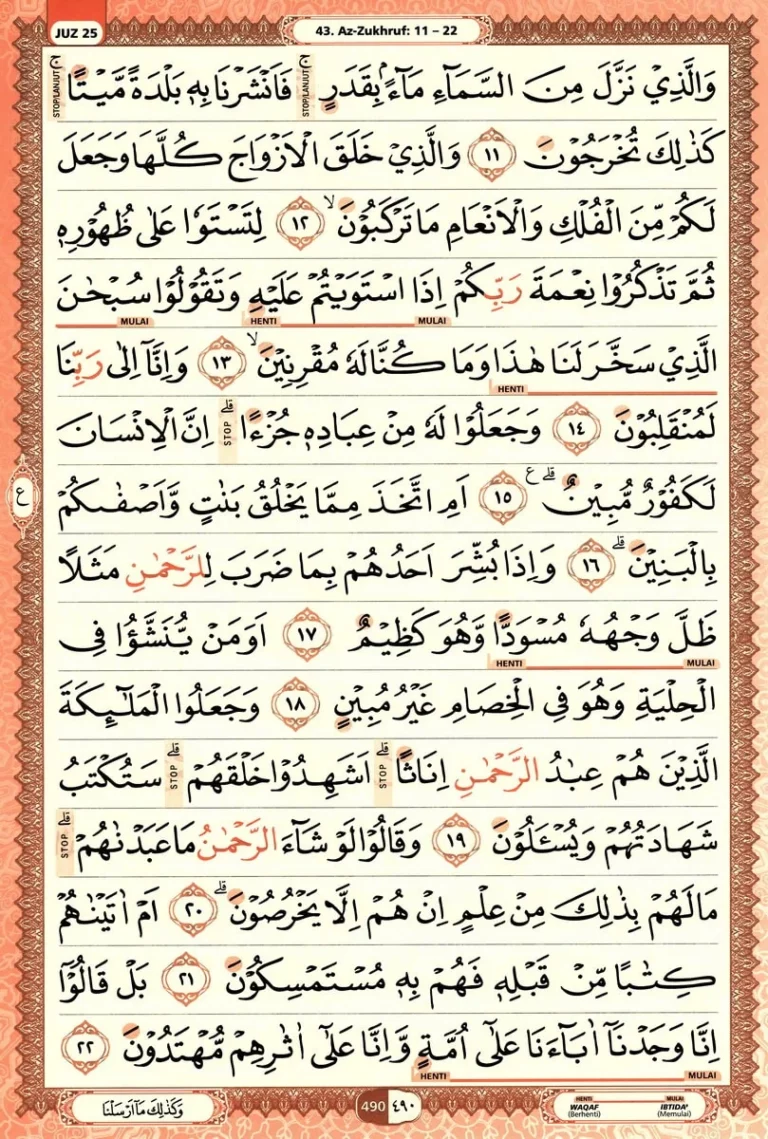 JUZ 25
43. Az-Zukhruf: 11 – 22
وَالَّذِيْ نَزَّلَ مِنَ السَّمَاۤءِ مَاۤءًۢ بِقَدَرٍۚ STOP/LANJUT فَاَنْشَرْنَا بِهٖ بَلْدَةً مَّيْتًاۚ STOP/LANJUT
كَذٰلِكَ تُخْرَجُوْنَ ١١ وَالَّذِيْ خَلَقَ الْاَزْوَاجَ كُلَّهَا وَجَعَلَ
لَكُمْ مِّنَ الْفُلْكِ وَالْاَنْعَامِ مَا تَرْكَبُوْنَۙ ١٢ لِتَسْتَوٗا عَلٰى ظُهُوْرِهٖ
ثُمَّ تَذْكُرُوْا نِعْمَةَ رَبِّكُمْ اِذَا اسْتَوَيْتُمْ عَلَيْهِ وَتَقُوْلُوْا سُبْحٰنَ
MULAI HENTI MULAI
الَّذِيْ سَخَّرَ لَنَا هٰذَا وَمَا كُنَّا لَهٗ مُقْرِنِيْنَۙ ١٣ وَاِنَّآ اِلٰى رَبِّنَا
HENTI
لَمُنْقَلِبُوْنَ ١٤ وَجَعَلُوْا لَهٗ مِنْ عِبَادِهٖ جُزْءًاۗ STOP اِنَّ الْاِنْسَانَ
لَكَفُوْرٌ مُّبِيْنٌۗ ع ١٥ اَمِ اتَّخَذَ مِمَّا يَخْلُقُ بَنٰتٍ وَّاَصْفٰىكُمْ
ع
بِالْبَنِيْنَۗ ١٦ وَاِذَا بُشِّرَ اَحَدُهُمْ بِمَا ضَرَبَ لِلرَّحْمٰنِ مَثَلًا
ظَلَّ وَجْهُهٗ مُسْوَدًّا وَّهُوَ كَظِيْمٌ ١٧ اَوَمَنْ يُّنَشَّؤُا فِى
HENTI MULAI
الْحِلْيَةِ وَهُوَ فِى الْخِصَامِ غَيْرُ مُبِيْنٍ ١٨ وَجَعَلُوا الْمَلٰۤىِٕكَةَ
الَّذِيْنَ هُمْ عِبٰدُ الرَّحْمٰنِ اِنَاثًاۗ STOP اَشَهِدُوْا خَلْقَهُمْۗ STOP سَتُكْتَبُ
شَهَادَتُهُمْ وَيُسْـَٔلُوْنَ ١٩ وَقَالُوْا لَوْ شَاۤءَ الرَّحْمٰنُ مَا عَبَدْنٰهُمْۗ STOP
مَا لَهُمْ بِذٰلِكَ مِنْ عِلْمٍ اِنْ هُمْ اِلَّا يَخْرُصُوْنَۗ ٢٠ اَمْ اٰتَيْنٰهُمْ
كِتٰبًا مِّنْ قَبْلِهٖ فَهُمْ بِهٖ مُسْتَمْسِكُوْنَ ٢١ بَلْ قَالُوْٓا
اِنَّا وَجَدْنَآ اٰبَاۤءَنَا عَلٰٓى اُمَّةٍ وَّاِنَّا عَلٰٓى اٰثٰرِهِمْ مُّهْتَدُوْنَ ٢٢
HENTI MULAI
وَكَذٰلِكَ مَآ اَرْسَلْنَا
490 ٤٩٠
HENTI MULAI
WAQAF (Berhenti) IBTIDA' (Memulai)